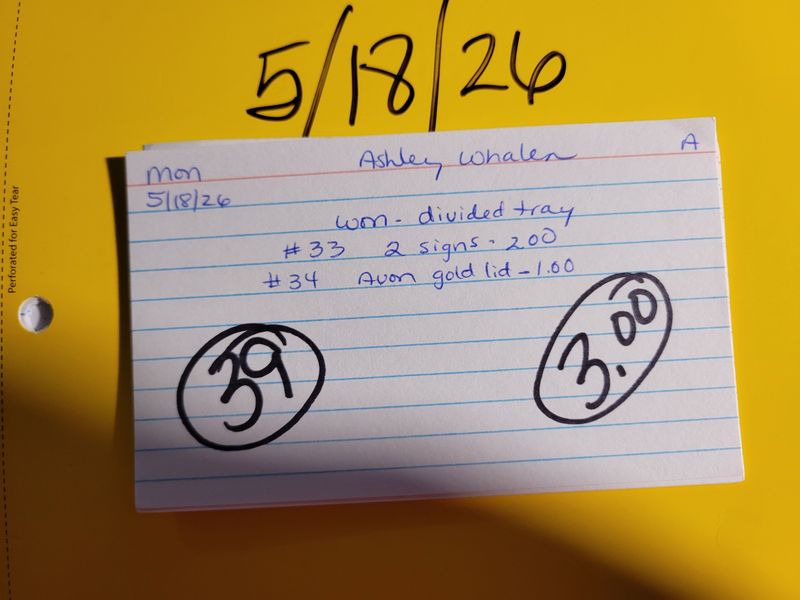 5/18/26
Perforated for Easy Tear
Mon Ashley Whalen A
5/18/26
won - divided tray
#33 2 signs - 2.00
#34 Avon gold lid - 1.00
39
3.00